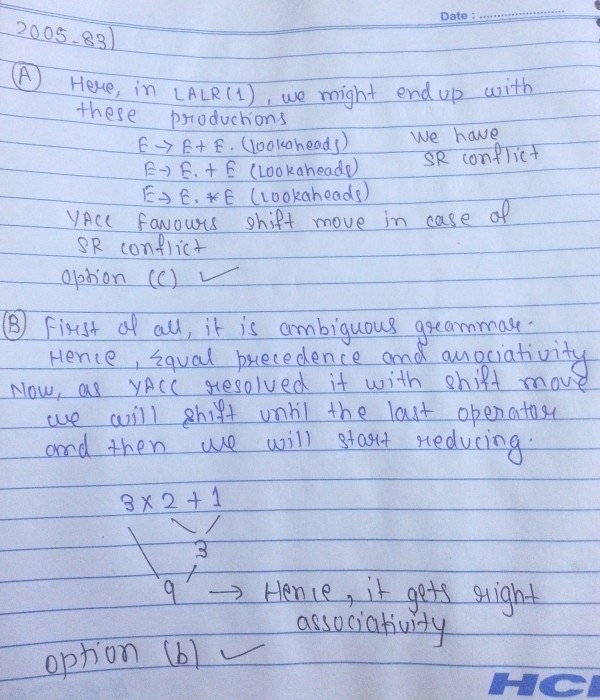 Date : ..............................
2005-83)
(A) Here, in LALR(1), we might end up with
these productions
E → E + E. (lookaheads) We have
E → E. + E (Lookaheads) SR conflict
E → E. * E (Lookaheads)
YACC favours shift move in case of
SR conflict
option (C) ✓
(B) First of all, it is ambiguous grammar.
Hence, Equal precedence and associativity
Now, as YACC resolved it with shift move
we will shift until the last operator
and then we will start reducing.
3 × 2 + 1
3
9 → Hence, it gets right
associativity
option (b) ✓
HCL